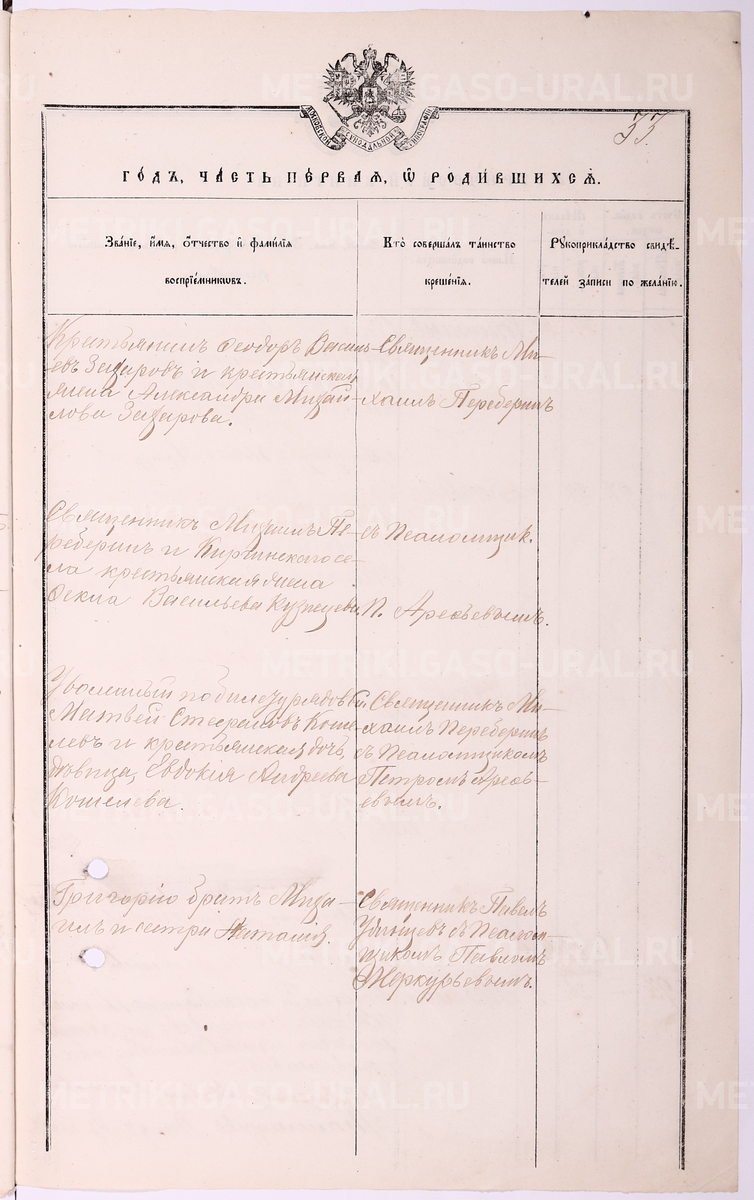 33.
МОСКОВСКОЙ СѴНОДАЛЬНОЙ ТИПОГРАФІИ
ГО́ДЪ, ЧА́СТЬ ПЕ́РВАЯ, Ѡ҆ РОДИ́ВШИХСЯ.
Зва́ніе, и҆́мя, ѻ҆́тчество и҆ фами́лія
воспрїе́мникѡвъ.
Кто̀ соверша́лъ та́инство
креще́нія.
Рꙋкоприкла́дство свидѣ́-
телей за́писи по жела́нію.
Крестьянинъ Ѳеодоръ Василь-
евъ Захаровъ и крестьянская
жена Александра Михай-
лова Захарова.
Священникъ Ми-
хаилъ Переберинъ
Священникъ Михаилъ Пе-
реберинъ и Киргинскаго се-
ла крестьянская жена
Ѳекла Васильева Кузнецова.
съ Псаломщик.
П. Арефьевымъ.
Уволенный по билету рядовой
Матвей Стефановъ Коше-
левъ и крестьянская дочь,
девица, Евдокія Андреева
Кошелева.
Священникъ Ми-
хаилъ Переберинъ
съ Псаломщикомъ
Петромъ Арефь-
евымъ.
Григорію братъ Миха-
илъ и сестра Наталія.
Священникъ Павелъ
съ Псалом-
щикомъ Павломъ
Меркурьевымъ.
METRIKI.GASO-URAL.RU